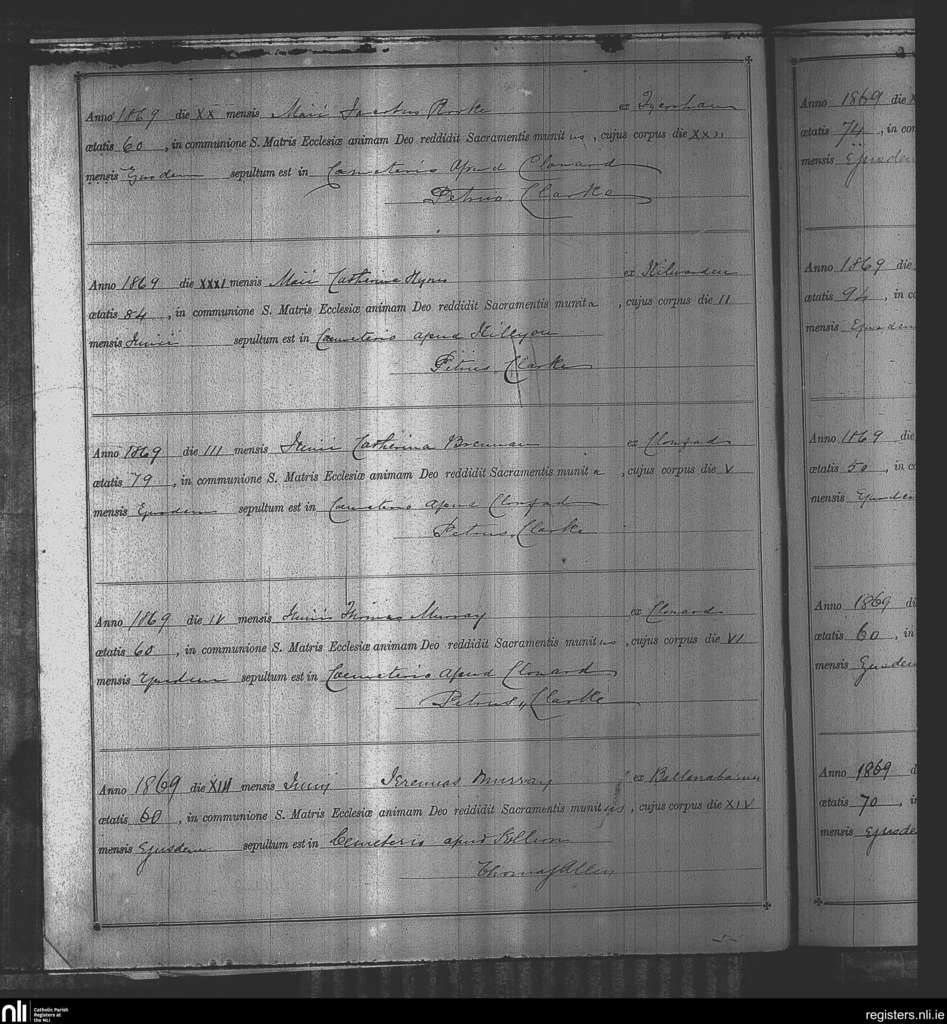 Anno 1869 die XX mensis Maii Jacobus Rorke ex
ætatis 60, in communione S. Matris Ecclesiæ animam Deo reddidit Sacramentis munitus, cujus corpus die XXII
mensis Ejusdem sepultum est in Cœmeterio apud Clonard
Petrus Clarke
Anno 1869 die XXXI mensis Maii Catherina ex Kilwarden
ætatis 84, in communione S. Matris Ecclesiæ animam Deo reddidit Sacramentis munita, cujus corpus die II
mensis Junii sepultum est in Cœmeterio apud Killyon
Petrus Clarke
Anno 1869 die III mensis Junii Catherina Brennan ex Clonfad
ætatis 79, in communione S. Matris Ecclesiæ animam Deo reddidit Sacramentis munita, cujus corpus die V
mensis Ejusdem sepultum est in Cœmeterio apud Clonfad
Petrus Clarke
Anno 1869 die IV mensis Junii Thomas Murray ex Clonard
ætatis 60, in communione S. Matris Ecclesiæ animam Deo reddidit Sacramentis munitus, cujus corpus die VI
mensis Ejusdem sepultum est in Cœmeterio apud Clonard
Petrus Clarke
Anno 1869 die XIII mensis Junij Jeremias Murray ex
ætatis 60, in communione S. Matris Ecclesiæ animam Deo reddidit Sacramentis munitus, cujus corpus die XIV
mensis Ejusdem sepultum est in Cemeterio apud
Thomas Allen
Anno 1869 die
ætatis 74, in
mensis Ejusdem
Anno 1869 die
ætatis 94, in
mensis Ejusdem
Anno 1869 die
ætatis 50, in
mensis Ejusdem
Anno 1869
ætatis 60, in
mensis Ejusdem
Anno 1869
ætatis 70,
mensis Ejusde
nli Catholic Parish
Registers at
the NLI
registers.nli.ie